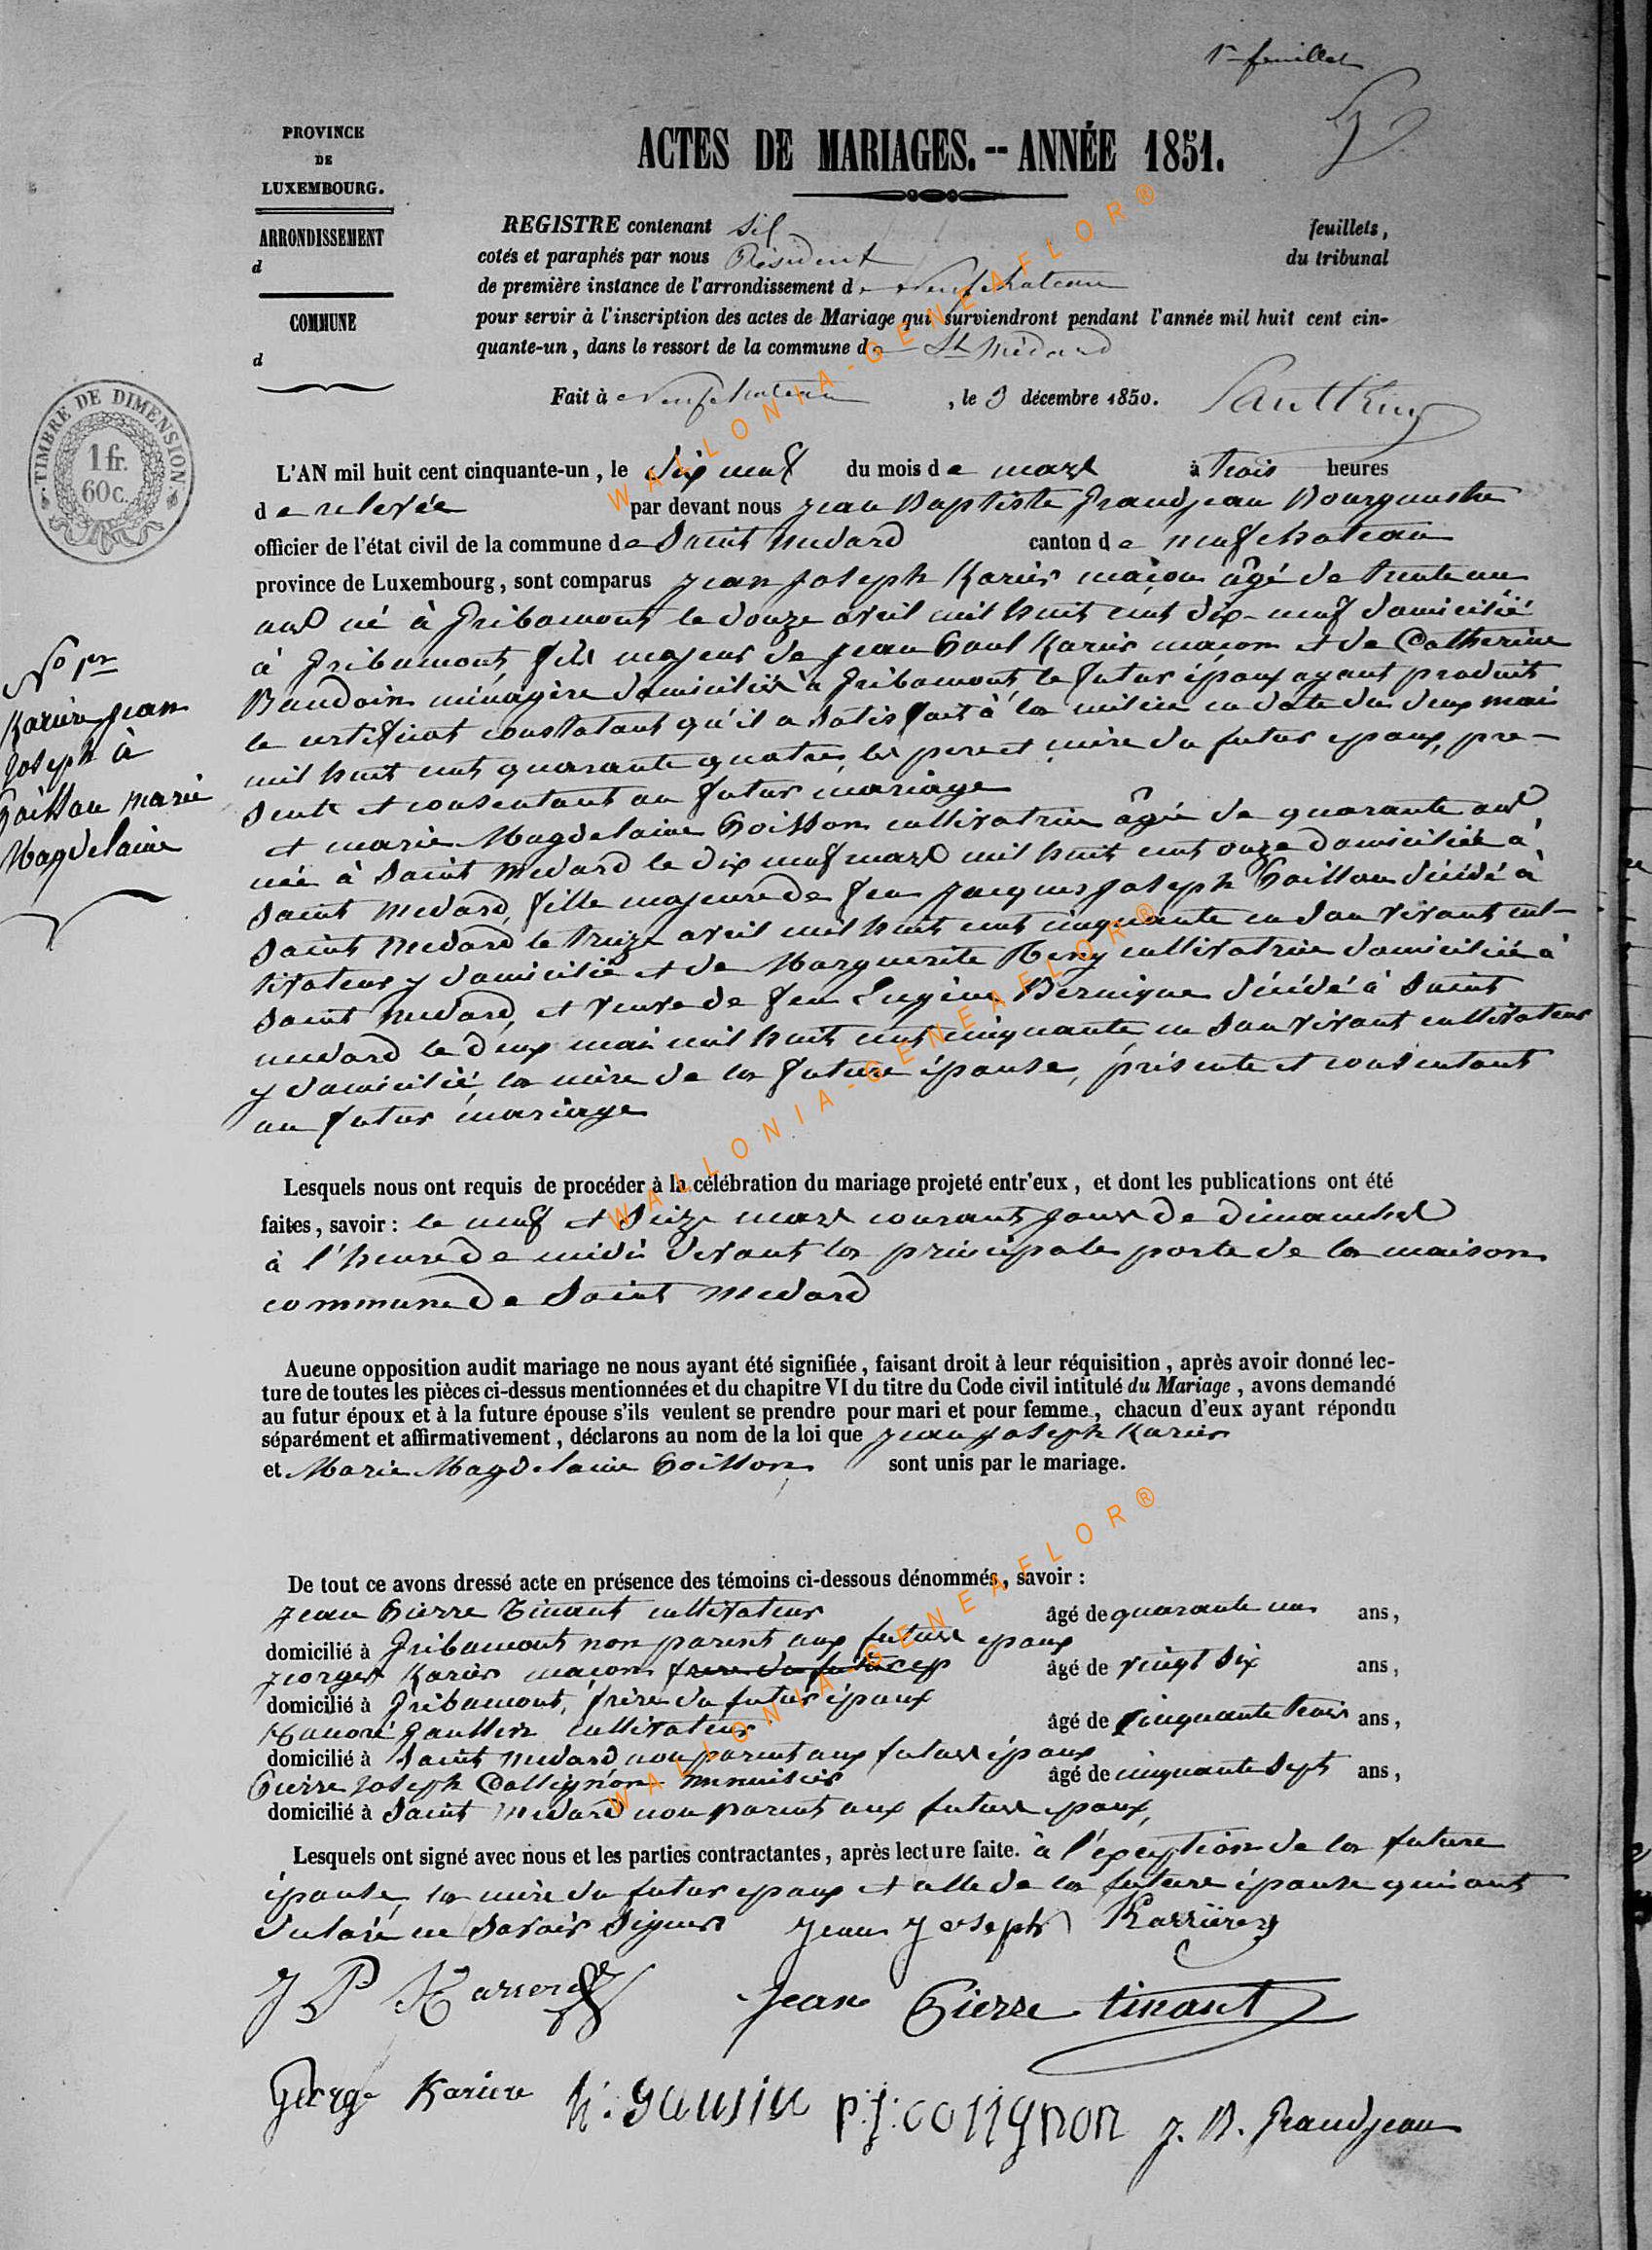 1r feuillet
PROVINCE
DE
LUXEMBOURG.
ARRONDISSEMENT
d
COMMUNE
d
ACTES DE MARIAGES. -- ANNÉE 1851.
REGISTRE contenant six feuillets,
cotés et paraphés par nous Président du tribunal
de première instance de l'arrondissement de Neufchateau
pour servir à l'inscription des actes de Mariage qui surviendront pendant l'année mil huit cent cin-
quante-un, dans le ressort de la commune de St Médard
Fait à Neufchateau, le 3 décembre 1850.
TIMBRE DE DIMENSION
1 fr.
60 c.
L'AN mil huit cent cinquante-un, le dix neuf du mois de mars à trois heures
de relevée par devant nous jean Baptiste Grandjean Bourgmestre
officier de l'état civil de la commune de Saint Medard canton de neufchateau
province de Luxembourg, sont comparus jean joseph Karier maçon âgé de trente un
ans né à Gribomont le douze avril mil huit cent dix-neuf domicilié
à Gribomont, fils majeur de jean Paul Karier maçon et de Catherine
Baudoin ménagère domiciliés à Gribomont le futur époux ayant produit
le certificat constatant qu'il a satisfait à la milice en date du deux mai
mil huit cent quarante quatre, les pere et mère du futur epoux, pre-
sents et consentant au futur mariage
et marie Magdelaine Poisson cultivatrice âgée de quarante ans
née à Saint Medard le dix neuf mars mil huit cent onze domiciliée à
Saint Medard, fille majeure de feu jacques joseph Poisson décédé à
Saint Medard le treize avril mil huit cent cinquante en son vivant cul-
tivateur y domicilié et de Marguerite cultivatrice domiciliée à
Saint Medard, et veuve de feu Eugène Bernique décédé à Saint
medard le deux mai mil huit cent cinquante, en son vivant cultivateur
y domicilié, la mère de la future épouse, présente et consentant
au futur mariage
No 1er
Karier jean
joseph à
Poisson marie
Magdelaine
Lesquels nous ont requis de procéder à la célébration du mariage projeté entr'eux, et dont les publications ont été
faites, savoir : le neuf et seize mars courant jours de dimanches
à l'heure de midi devant la principale porte de la maison
commune de Saint Medard
Aucune opposition audit mariage ne nous ayant été signifiée, faisant droit à leur réquisition, après avoir donné lec-
ture de toutes les pièces ci-dessus mentionnées et du chapitre VI du titre du Code civil intitulé du Mariage, avons demandé
au futur époux et à la future épouse s'ils veulent se prendre pour mari et pour femme, chacun d'eux ayant répondu
séparément et affirmativement, déclarons au nom de la loi que jean joseph Karier
et Marie Magdelaine Poisson sont unis par le mariage.
De tout ce avons dressé acte en présence des témoins ci-dessous dénommés, savoir :
jean Pierre Tinant cultivateur âgé de quarante un ans,
domicilié à Gribomont non parent aux futurs epoux
georges Karier maçon frere du futur ep âgé de vingt six ans,
domicilié à Gribomont, frère du futur époux
Honoré Gaussin cultivateur âgé de cinquante trois ans,
domicilié à Saint Medard non parent aux futurs époux
Pierre joseph Collignon menuisier âgé de cinquante sept ans,
domicilié à Saint Medard non parent aux futurs epoux,
Lesquels ont signé avec nous et les parties contractantes, après lecture faite. à l'exception de la future
épouse, la mère du futur epoux et celle de la future épouse qui ont
declaré ne savoir signer Jean Joseph Karriere
J P Karier
Jean Pierre tinant
George Kariere h. gausin p:j:collignon J. B. Grandjean
WALLONIA-GENEAFLOR®
WALLONIA-GENEAFLOR®
WALLONIA-GENEAFLOR®